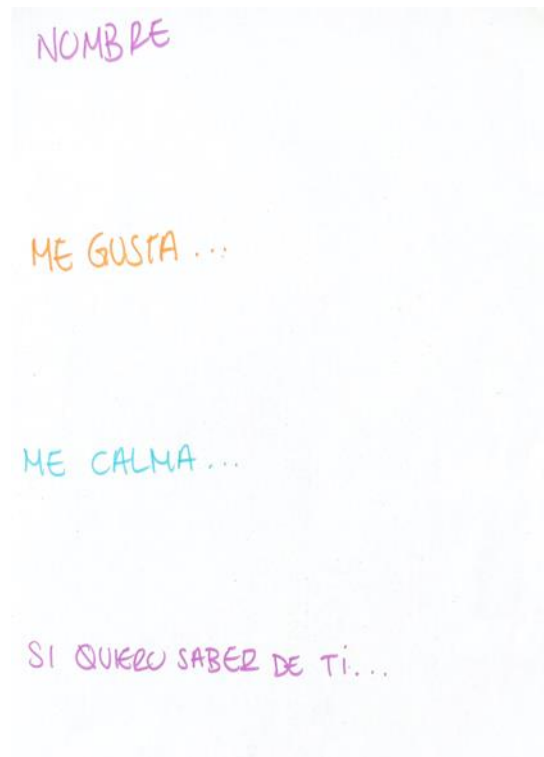 NOMBRE
ME GUSTA ...
ME CALMA ...
SI QUIERO SABER DE TI...